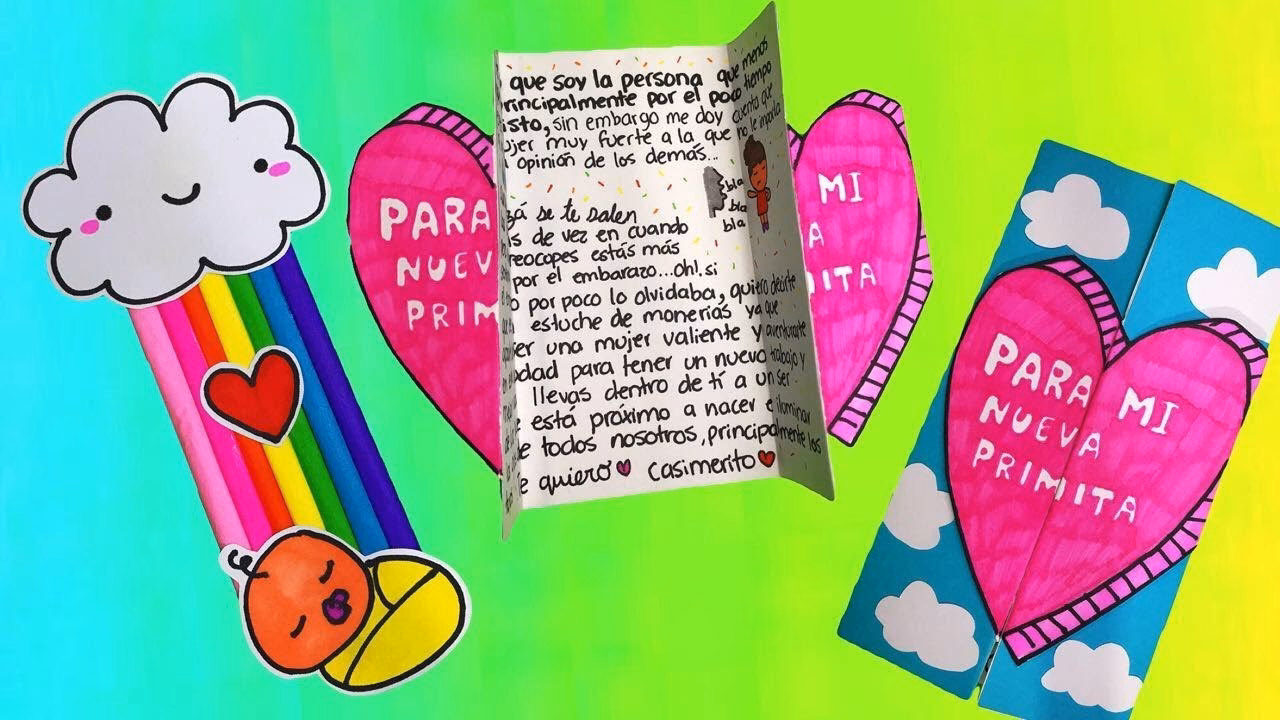 PARA
NUEV
PRIM
que soy la persona que menos
rincipalmente por el poco tiempo
isto, sin embargo me doy cuenta que
ujer muy fuerte a la que no le importa
opinión de los demás...
bla
bla
bla
zá se te salen
s de vez en cuando
reocupes estás más
por el embarazo...Oh!, si
o por poco lo olvidaba, quiero decirte
estuche de monerías ya que
er una mujer valiente y aventurarte
dad para tener un nuevo trabajo y
llevas dentro de tí a un ser
está próximo a nacer e iluminar
e todos nosotros, principalmente los
e quiero casimerito
MI
A
IMITA
PARA MI
NUEVA
PRIMITA